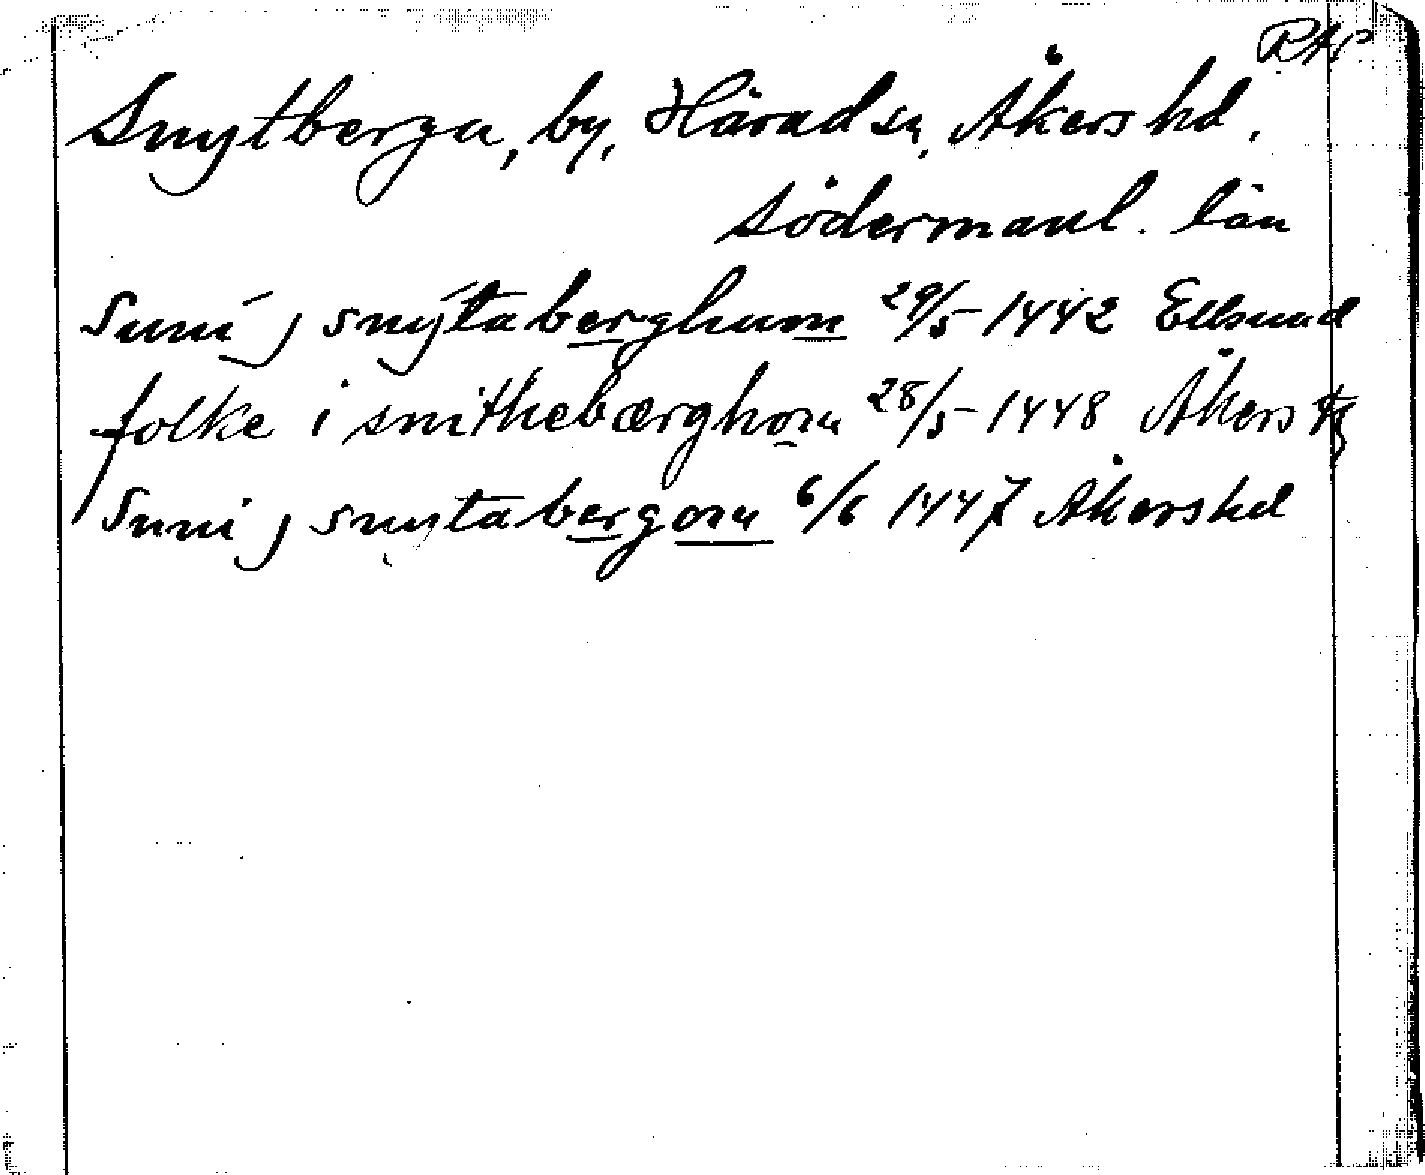 RAp
Snytberga, by, Härads sn, Åkers hd.
Södermanl. län
Suni j snýtaberghum 29/5 1442 Elbsund
folke i snithebærghom 28/5 1448 Åkers tg
Suni j snytabergom 6/6 1447 Åkershd